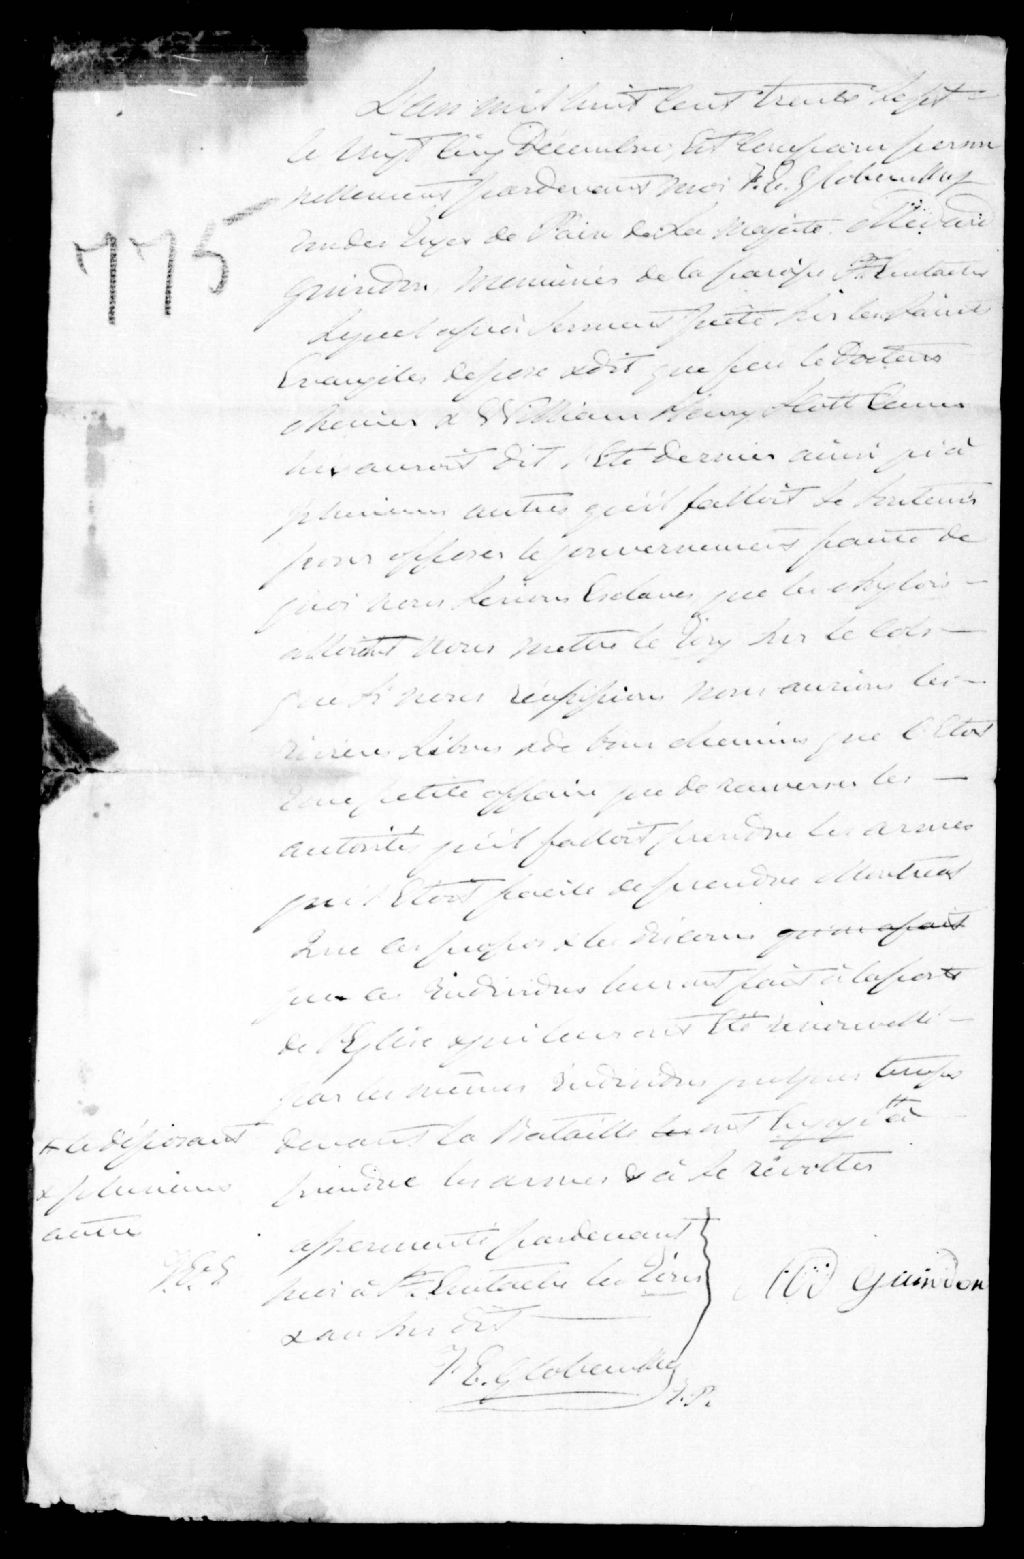 L'an mil huit cent trente sept
le vingt cinq Décembre, Est comparu person
nellement pardevant moi F. E. Globensky
un des Juges de Paix de Sa Majesté. Médard
Guindon, Menuisier de la paroisse St. Eustache
Lequel après serment prêté sur les Saints
Evangiles depose & dit que feu le Docteur
chenier & William Henry Scott Ecuier
lui auroit dit l'Eté dernier ainsi qu'à
plusieurs autres qu'il falloit se soutenir
pour opposer le gouvernement faute de
quoi nous serions Esclaves que les Anglois
alloient nous mettre le Joug sur le Cols
que si nous réussissions nous aurions les
rivières Libres & de bons chemins que C'Etoit
Une petite affaire que de renverser les
autorités qu'il falloit prendre les armes
qu'il Etoit facile de prendre Montreal
Que les propos & les discours qu'on a fait
que ces Individus leur ont fait à la porte
de l'Eglise & qui leur ont Eté renouvellé
par les mêmes Individus quelques temps
devant la Bataille ont Engagé + à
prendre les armes & à se révolter
775
+ le déposant
& plusieurs
autre
F. E. G
assermenté pardevant
moi à St. Eustache les Jour
& an sus dit
F. E. Globensky
J. P.
MD Guindon